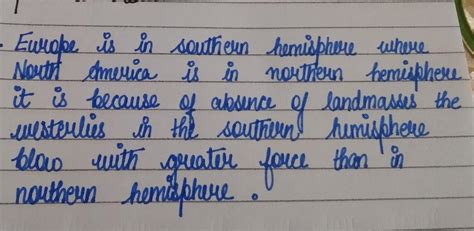 Europe is in southern hemisphere where
North America is in northern hemisphere
it is because of absence of landmasses the
westerlies in the southern hemisphere
blow with greater force than in
northern hemisphere.